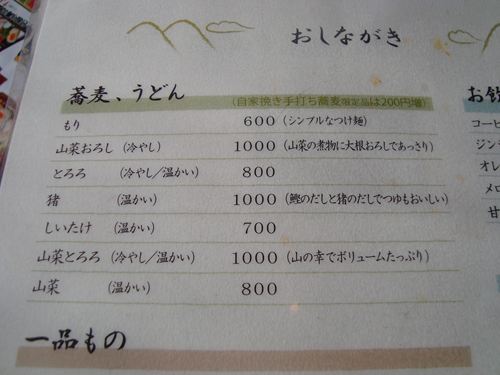 おしながき
蕎麦、うどん (自家挽き手打ち蕎麦限定品は200円増)
もり 600 (シンプルなつけ麺)
山菜おろし (冷やし) 1000 (山菜の煮物に大根おろしであっさり)
とろろ (冷やし/温かい) 800
猪 (温かい) 1000 (鰹のだしと猪のだしでつゆもおいしい)
しいたけ (温かい) 700
山菜とろろ (冷やし/温かい) 1000 (山の幸でボリュームたっぷり)
山菜 (温かい) 800
一品もの
お飲
コーヒ
ジン
オレ
メロ
甘